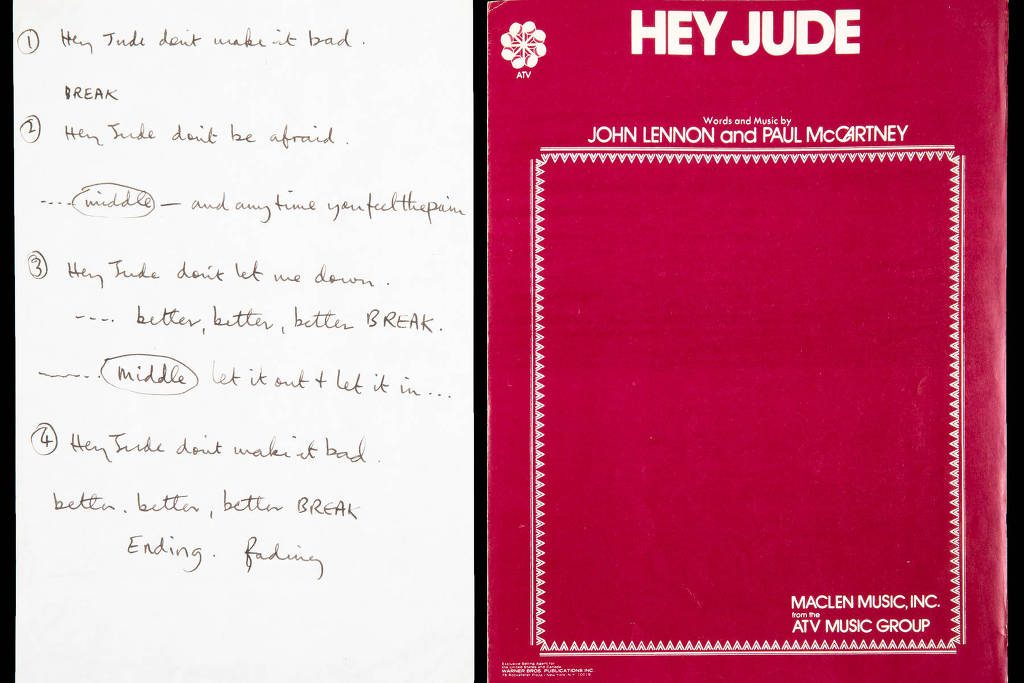 ① Hey Jude don't make it bad.
BREAK
② Hey Jude don't be afraid.
---- middle — and any time you feel the pain
③ Hey Jude don't let me down.
---- better, better, better BREAK.
middle let it out + let it in...
④ Hey Jude don't make it bad.
better. better, better BREAK
Ending. fading
ATV
HEY JUDE
Words and Music by
JOHN LENNON and PAUL McCARTNEY
MACLEN MUSIC, INC.
from the
ATV MUSIC GROUP
Exclusive Selling Agent for
the United States and Canada
WARNER BROS. PUBLICATIONS INC.
75 Rockefeller Plaza / New York, N.Y. 10019